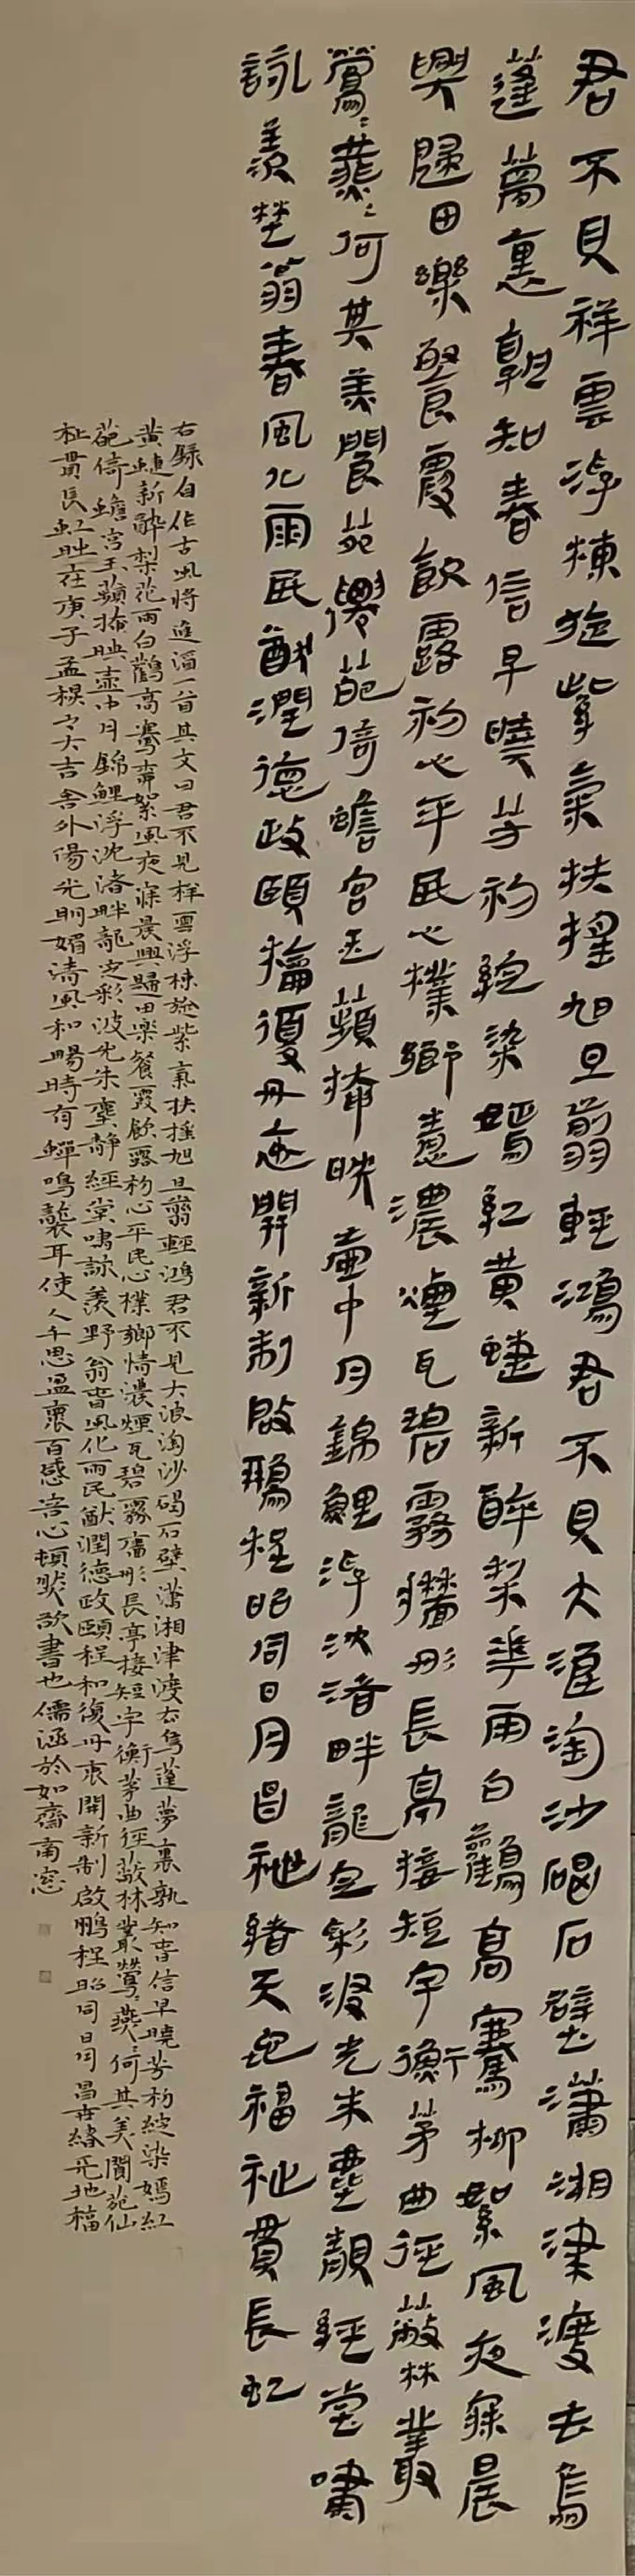 君不見祥雲浮棟旋紫氣扶搖旭旦翦輕鴻君不見大浪淘沙碣石壁瀟湘津渡去雋
蓬萬裏孰知春信早曉芳初綻染嫣紅黃蜨新醉梨華雨白鸛高騫柳絮風夜寐晨
興歸田樂餐霞飲露初心平民心樸鄉意濃煙瓦碧霧牆彤長亭接短宇衡茅曲徑蔽林叢
鶯〻燕〻何其美閬苑僊葩倚蟾宮玉蘋揜映壺中月錦鯉浮沈渚畔龍定彩波光朱塵靜經堂嘯
詠羨埜翁春風化雨民猷潤德政頤擒復丹衷開新制啟鵬程昭同日月昌祂緒天地福祉貫長虹
右錄自作古風將進酒一首其文曰君不見祥雲浮棟旋紫氣扶搖旭旦翦輕鴻君不見大浪淘沙碣石壁瀟湘津渡去雋蓬夢裏孰知春信早曉芳初綻染嫣紅
黃蜨新醉梨花雨白鸛高騫柳絮風夜寐晨興歸田樂餐霞飲露初心平民心樸鄉情濃煙瓦碧霧牆彤長亭接短宇衡茅曲徑蔽林叢鶯〻燕〻何其美閬苑仙
葩倚蟾宮玉蘋揜映壺中月錦鯉浮沈渚畔龍定彩波光朱塵靜經堂嘯詠羨野翁春風化雨民猷潤德政頤程和復丹衷開新制啟鵬程昭同日月昌世緒天地福
祉貫長虹時在庚子孟秋之大吉舍外陽光明媚清風和暢時有蟬鳴襲耳使人千思盈衷百感喜心頓然欲書也儒涵於如齋南窓